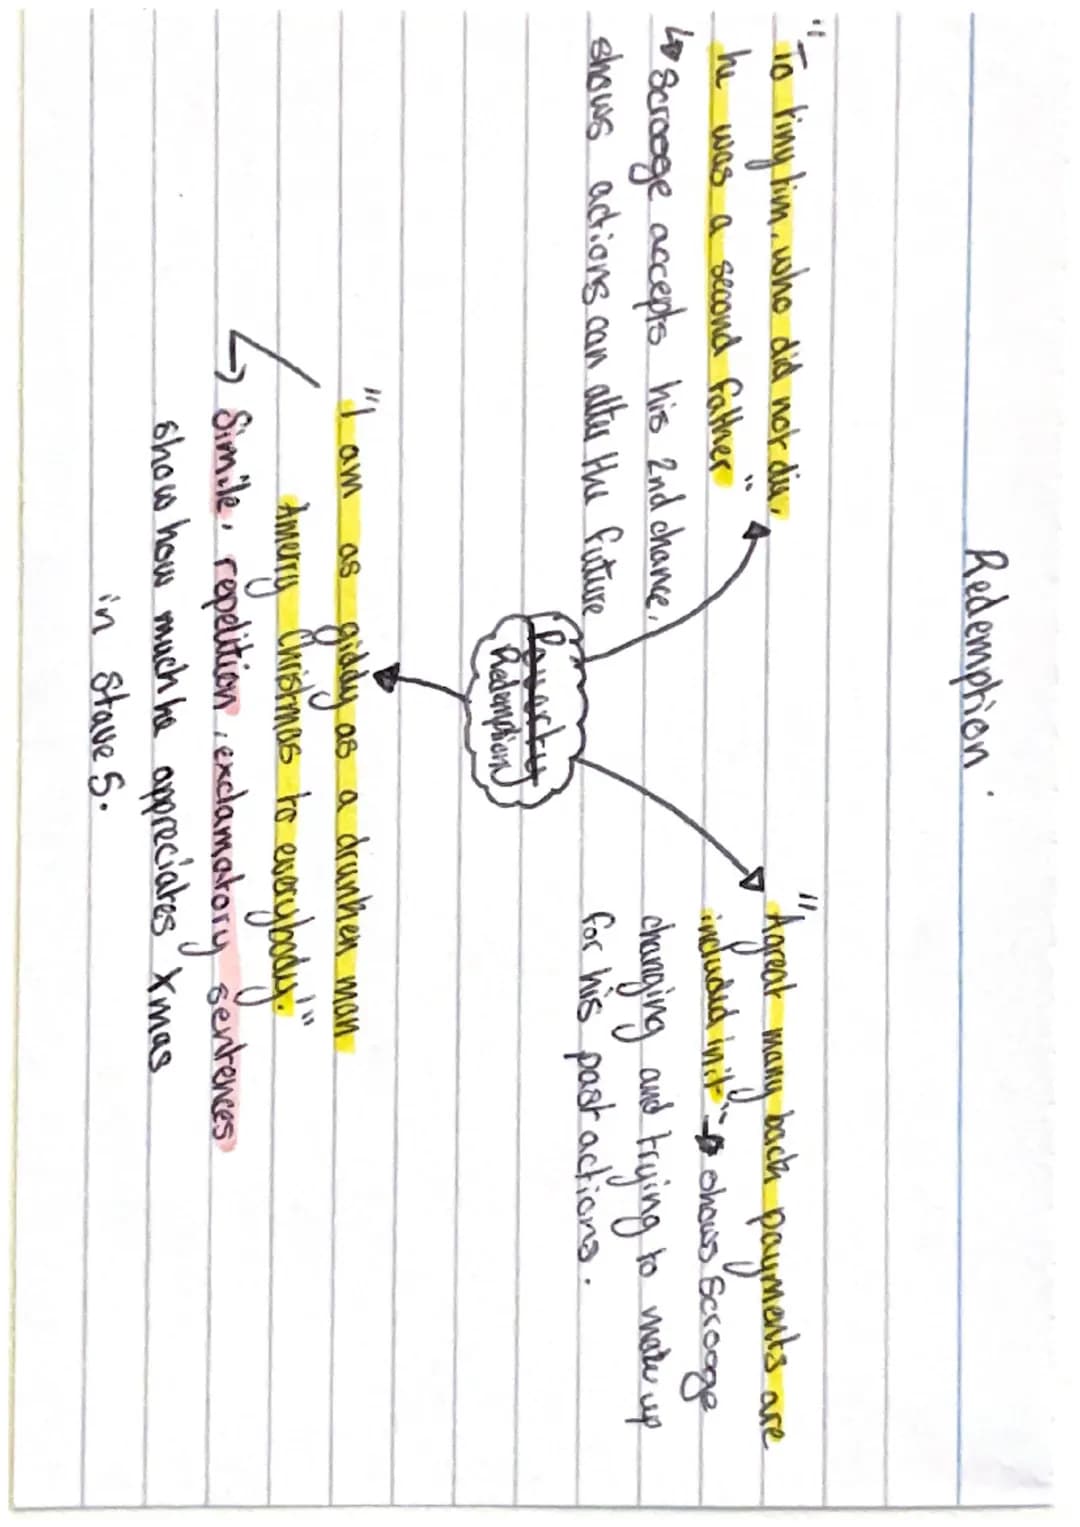 Redemption.
"To tiny tim, who did not die,
he was a second father"
↳ Scrooge accepts his 2nd chance,
shows actions can alter the future
"A great many back payments are
included in it" → shows Scrooge
changing and trying to make up
for his past actions.
Poverty
Redemption
"I am as giddy as a drunken man
A merry christmas to everybody!"
↳ Simile, repetition, exclamatory sentences
show how much he appreciates Xmas
in stave 5.